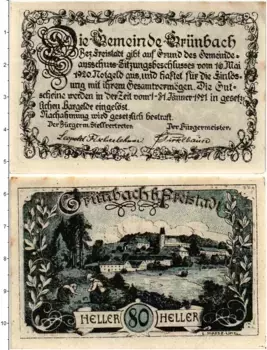 Die Gemeinde Grünbach
Bez. Freistadt gibt auf Grund des Gemeinde-
ausschuss-Sitzungsbeschlusses vom 16. Mai
1920 Notgeld aus, und haftet für die Einlös-
ung mit ihrem Gesamtvermögen. Die Gut-
scheine werden in der Zeit vom 1-31 Jänner 1921 in gesetz-
lichen Bargelde eingelöst.
Nachahmung wird gesetzlich bestraft.
Der Bürgerm. Stellvertreter: Der Bürgermeister:
Grünbach b. Freistadt
HELLER 80 HELLER